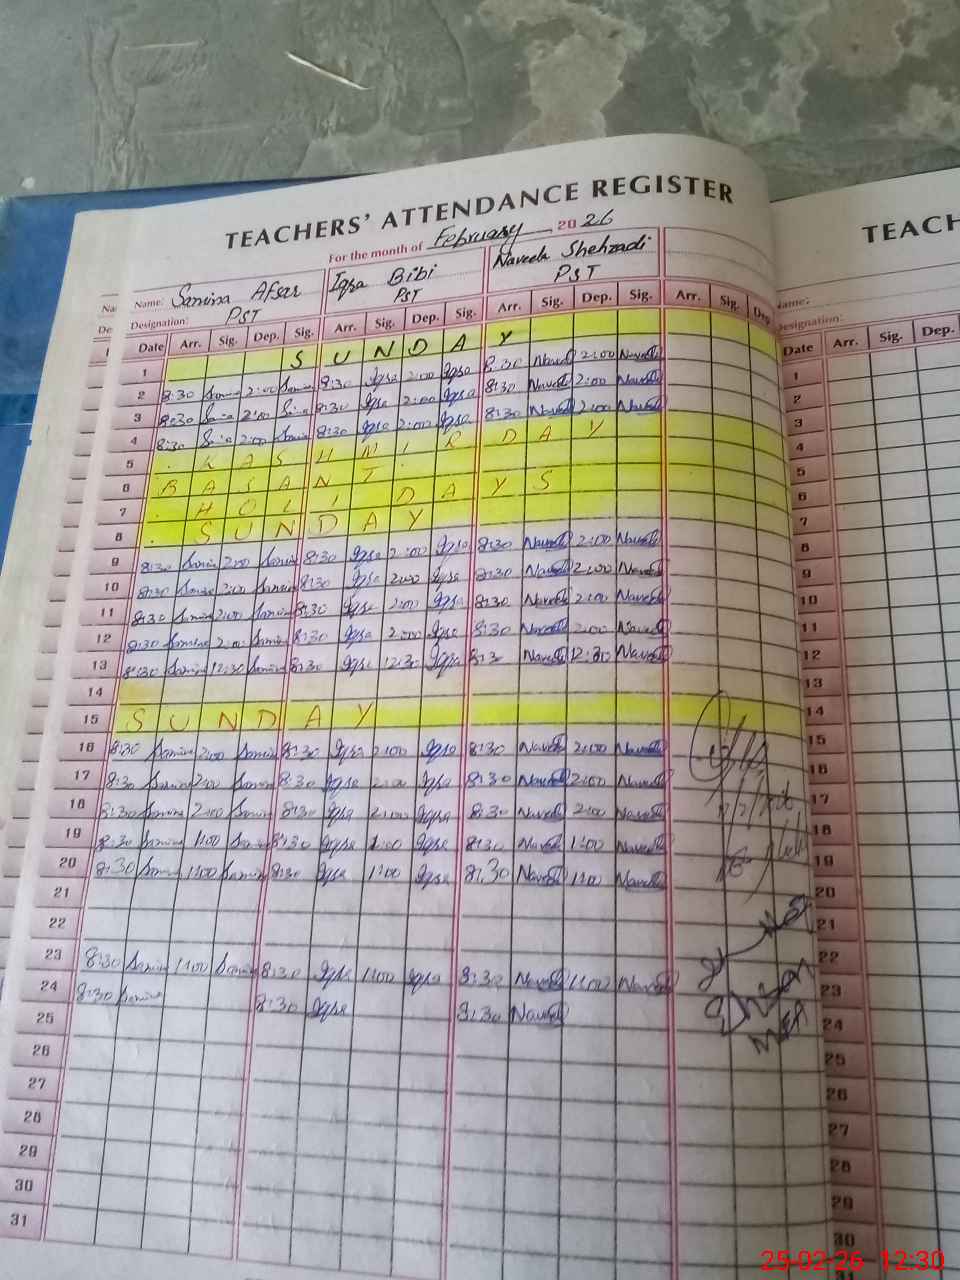 TEACHERS' ATTENDANCE REGISTER
For the month of February 2026
Name: Samina Afsar Iqra Bibi Naveela Shehzadi
Designation: PST PST PST
Date Arr. Sig. Dep. Sig. Arr. Sig. Dep. Sig. Arr. Sig. Dep. Sig. Arr. Sig. Dep
1 S U N D A Y
2 8:30 Samina 2:00 Samina 8:30 Iqra 2:00 Iqra 8:30 Naveela 2:00 Naveela
3 8:30 Samina 2:00 Samina 8:30 Iqra 2:00 Iqra 8:30 Naveela 2:00 Naveela
4 8:30 Samina 2:00 Samina 8:30 Iqra 2:00 Iqra 8:30 Naveela 2:00 Naveela
5 K A S H M I R D A Y
6 B A S A N T
7 H O L I D A Y S
8 S U N D A Y
9 8:30 Samina 2:00 Samina 8:30 Iqra 2:00 Iqra 8:30 Naveela 2:00 Naveela
10 8:30 Samina 2:00 Samina 8:30 Iqra 2:00 Iqra 8:30 Naveela 2:00 Naveela
11 8:30 Samina 2:00 Samina 8:30 Iqra 2:00 Iqra 8:30 Naveela 2:00 Naveela
12 8:30 Samina 2:00 Samina 8:30 Iqra 2:00 Iqra 8:30 Naveela 2:00 Naveela
13 8:30 Samina 12:30 Samina 8:30 Iqra 12:30 Iqra 8:30 Naveela 12:30 Naveela
14
15 S U N D A Y
16 8:30 Samina 2:00 Samina 8:30 Iqra 2:00 Iqra 8:30 Naveela 2:00 Naveela
17 8:30 Samina 2:00 Samina 8:30 Iqra 2:00 Iqra 8:30 Naveela 2:00 Naveela
18 8:30 Samina 2:00 Samina 8:30 Iqra 2:00 Iqra 8:30 Naveela 2:00 Naveela
19 8:30 Samina 1:00 Samina 8:30 Iqra 1:00 Iqra 8:30 Naveela 1:00 Naveela
20 8:30 Samina 1:00 Samina 8:30 Iqra 1:00 Iqra 8:30 Naveela 1:00 Naveela
21
22
23 8:30 Samina 1:00 Samina 8:30 Iqra 1:00 Iqra 8:30 Naveela 1:00 Naveela
24 8:30 Samina 8:30 Iqra 8:30 Naveela
25
26
27
28
29
30
31
TEACH
Name:
Designation:
Date Arr. Sig. Dep.
1
2
3
4
5
6
7
8
9
10
11
12
13
14
15
16
17
18
19
20
21
22
23
24
25
26
27
28
29
30
25-02-26 12:30